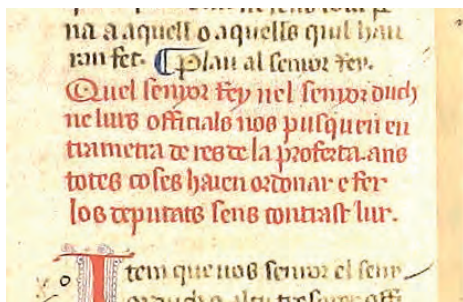 na a aquell o aquells quil hau
ran fet. Plau al senyor Rey.
Quel senyor Rey nel senyor duch
ne lurs officials nos pusquen en
trametra de res de la proferta. ans
totes coses haien ordonar e fer
los deputats sens contrast lur.
Item que nos senyor el seny